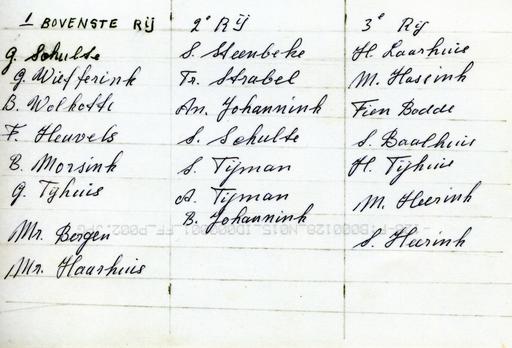 1 BOVENSTE RIJ
G. Schulte
G. Wiefferink
B. Wolkotte
F. Heuvels
B. Morsink
G. Tijhuis
Mr. Bergen
Mr. Haarhuis
2e Rij
S. Steenbeke
Tr. Strabel
An. Johannink
S. Schulte
S. Tijman
A. Tijman
B. Johannink
3e Rij
H. Laarhuis
M. Hassink
Fien Bodde
S. Baalhuis
H. Tijhuis
M. Heerink
S. Heerink